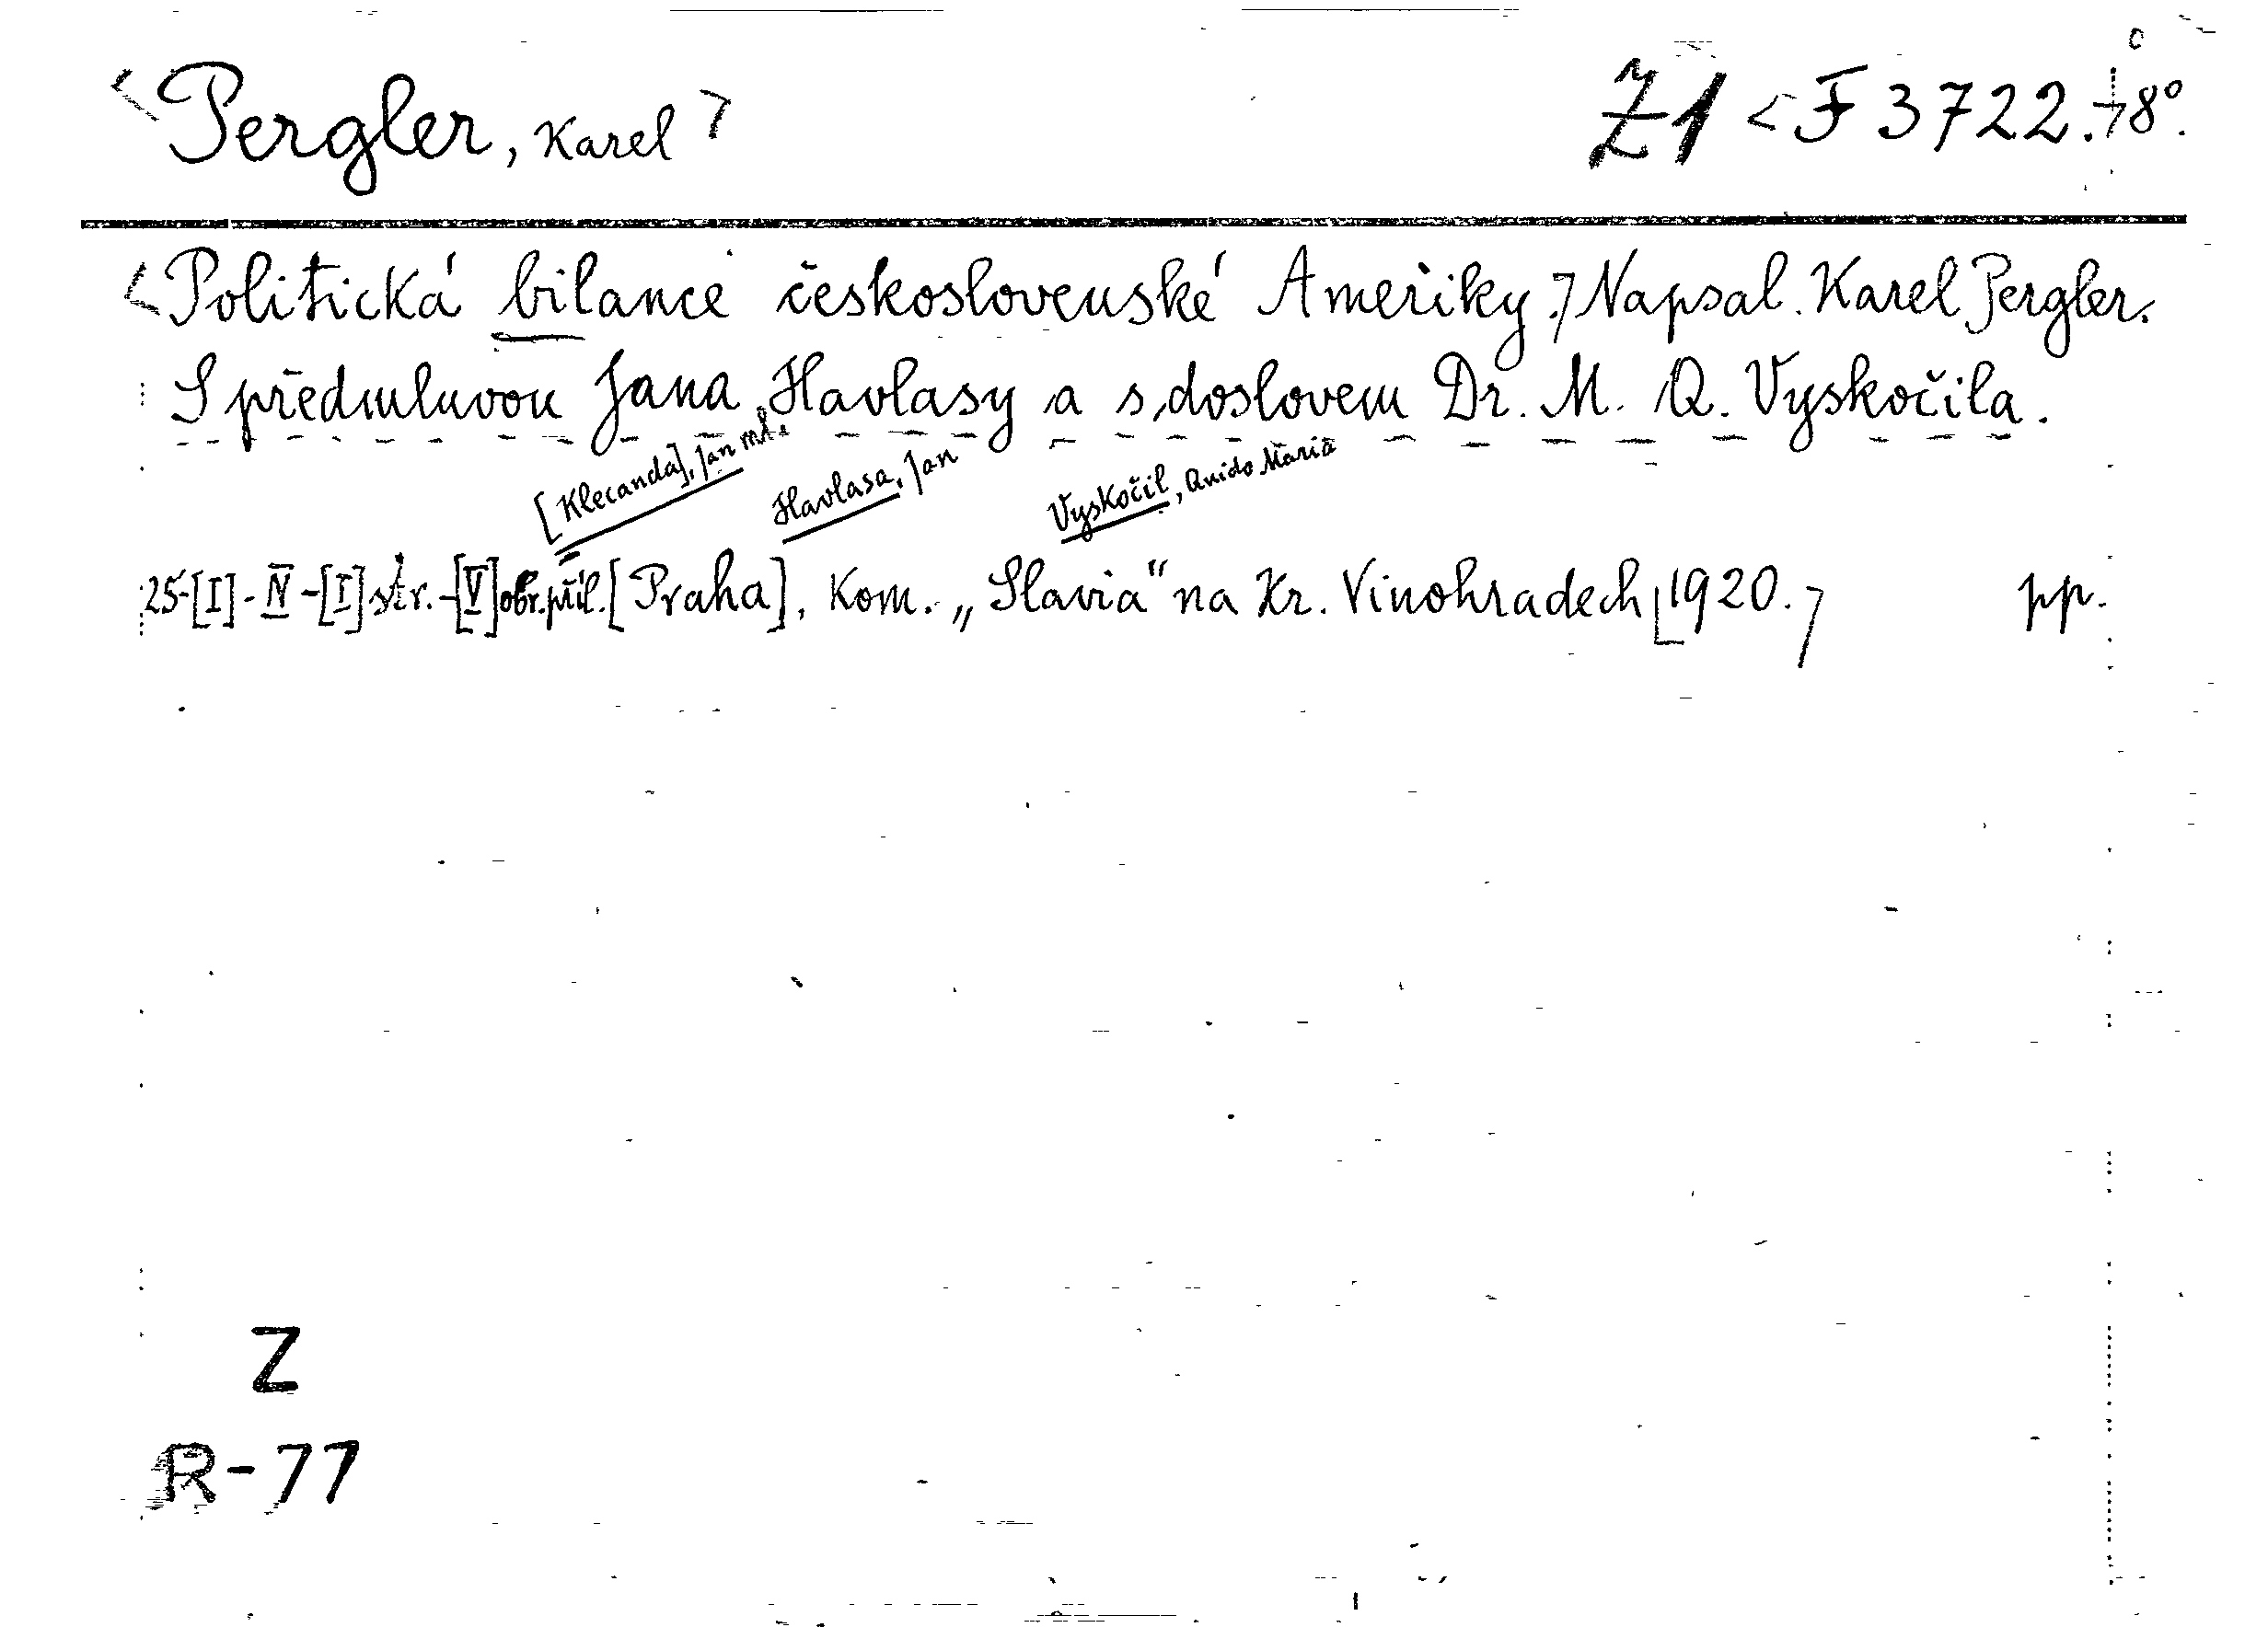 <Pergler, Karel> Z1 <F 3722.>8°.
<Politická bilance československé Ameriky.> Napsal Karel Pergler.
S předmluvou Jana Havlasy a s doslovem Dr. M. Q. Vyskočila.
[Klecanda], Jan ml. Havlasa, Jan Vyskočil, Quido Maria
25-[I]-IV-[I] str.-[V] obr. příl. [Praha], Kom. „Slavia“ na Kr. Vinohradech [1920.> pp.
Z
R-77